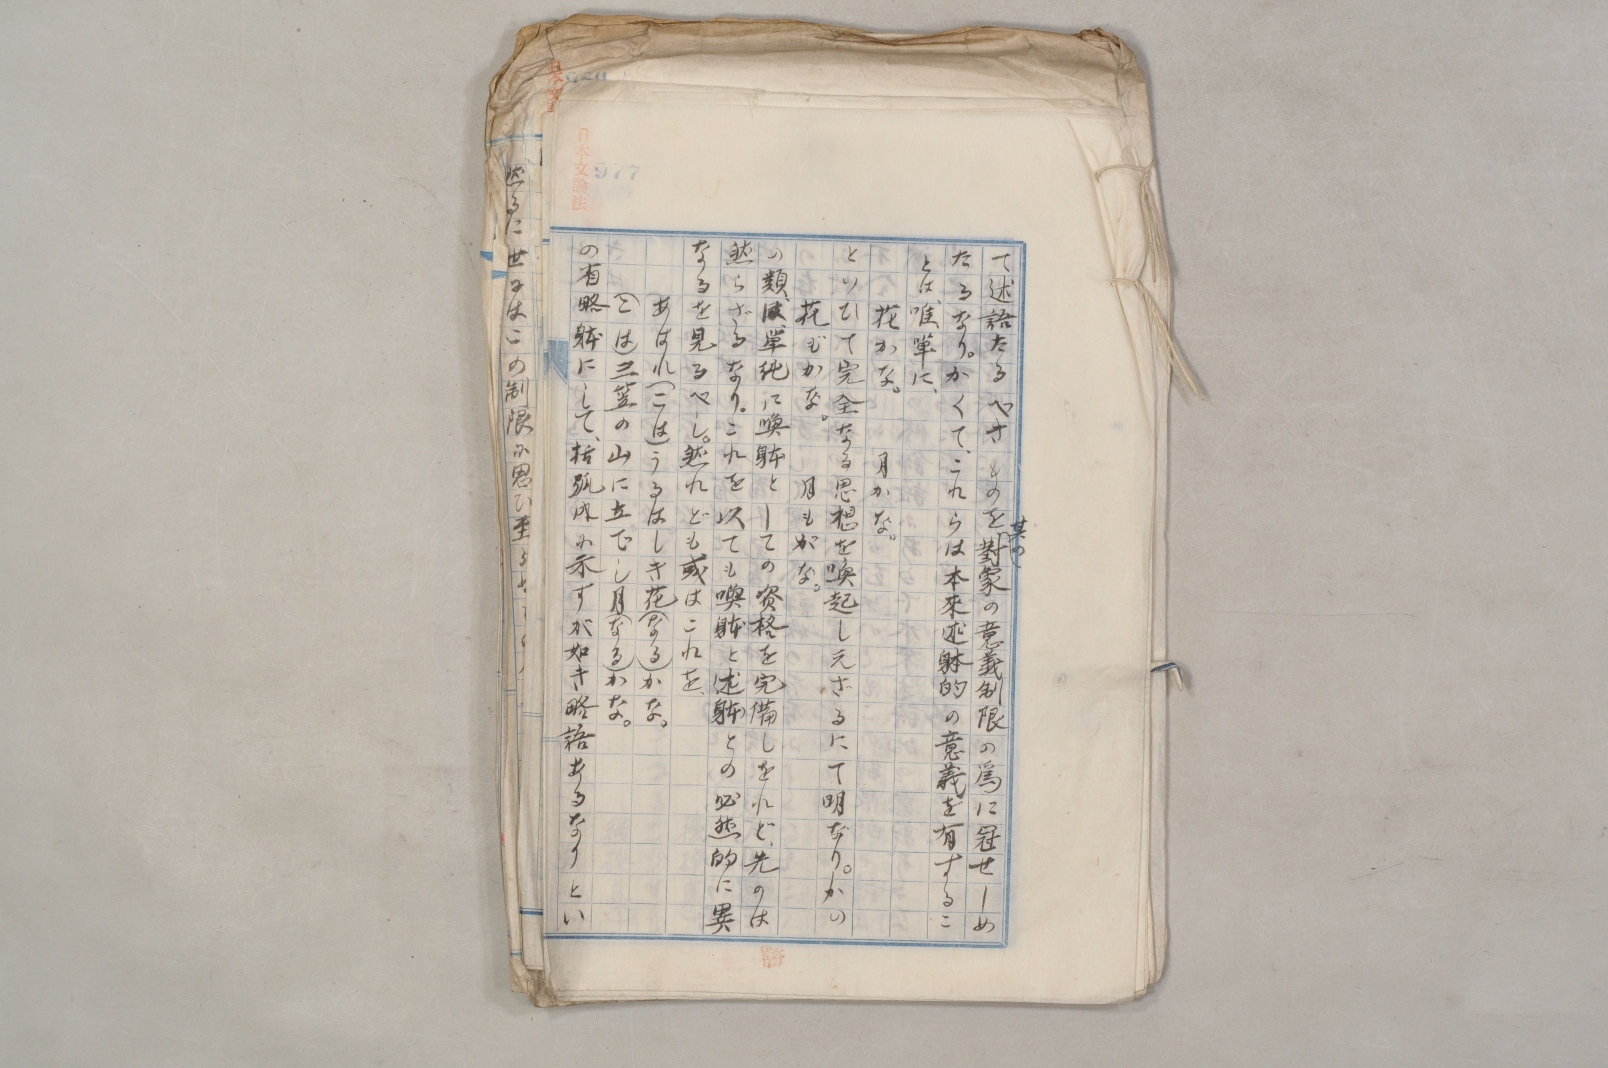 て述語たるべきものを其の對象の意義制限の爲に冠せしめ
たるなり。かくて、これらは本來述躰的の意義を有するこ
とは、唯單に、
花かな。　月かな。
といひて完全なる思想を喚起し元ざるにて明なり。かの
花もがな。　月もがな。
の類は、單純に喚躰としての資格を完備しをれど、先のは
然らざるなり。これを以ても喚躰と述躰との必然的に異
なるを見るべし。然れども或はこれを、
あはれ(こは)うるはしき花(なる)かな。
(こは)三笠の山に立でし月(なる)かな。
の省略躰にして、括弧内に示すが如き略語あるなりとい
然るに世にはこの制限に思ひ至
日本文論法
977